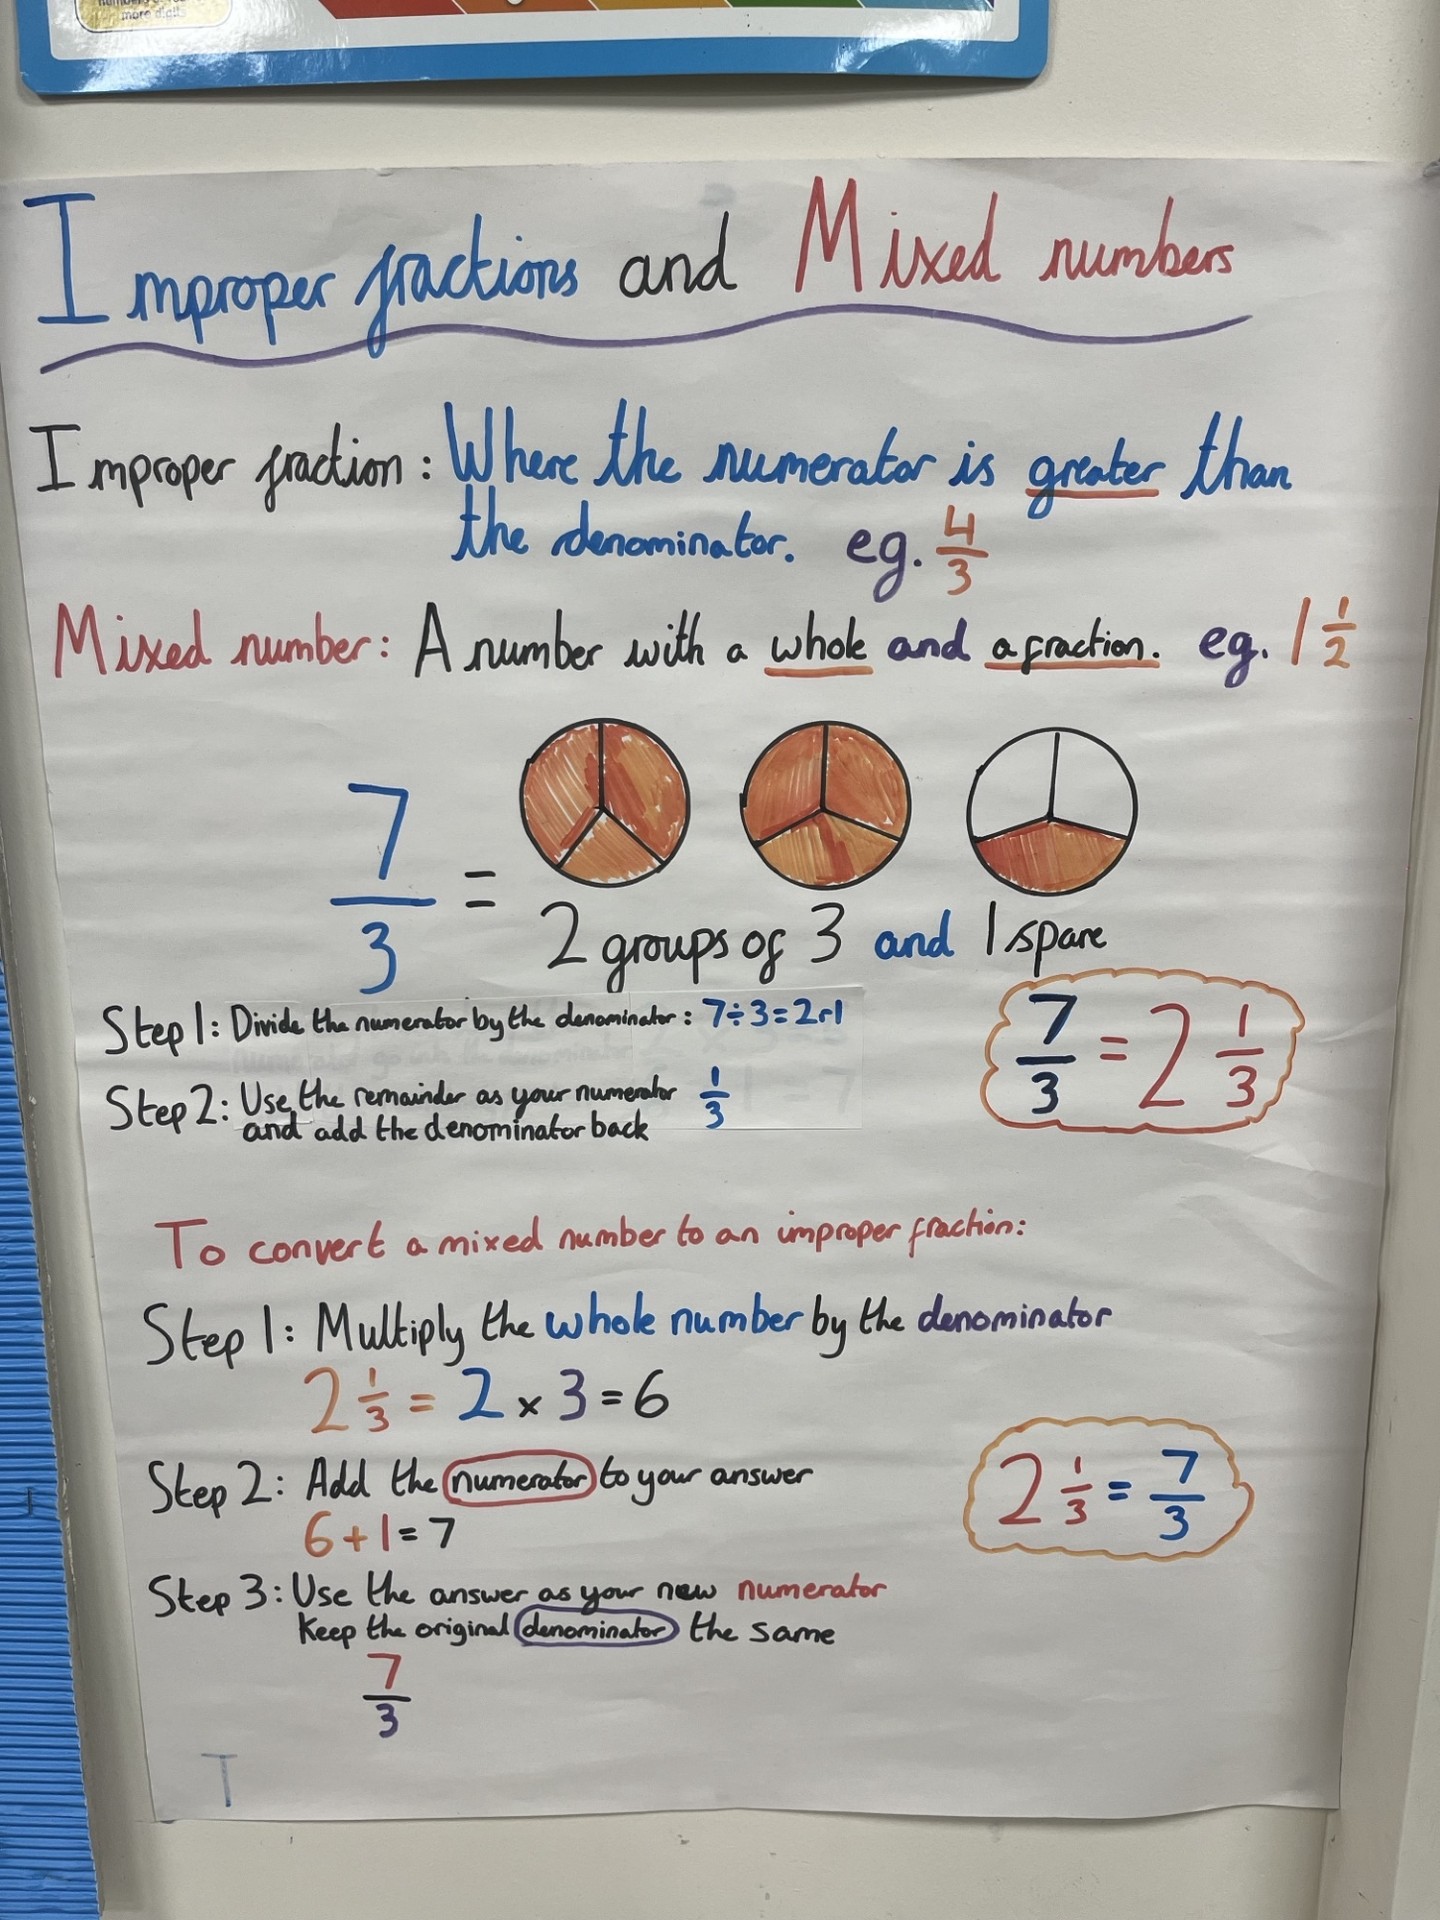 more digits
Improper fractions and Mixed numbers
Improper fraction: Where the numerator is greater than
the denominator. eg. 4/3
Mixed number: A number with a whole and a fraction. eg. 1 1/2
7/3 =
2 groups of 3 and 1 spare
Step 1: Divide the numerator by the denominator: 7÷3=2r1
Step 2: Use the remainder as your numerator 1/3
and add the denominator back
7/3 = 2 1/3
To convert a mixed number to an improper fraction:
Step 1: Multiply the whole number by the denominator
2 1/3 = 2 x 3 = 6
Step 2: Add the numerator to your answer
6+1=7
2 1/3 = 7/3
Step 3: Use the answer as your new numerator
Keep the original denominator the same
7/3
T